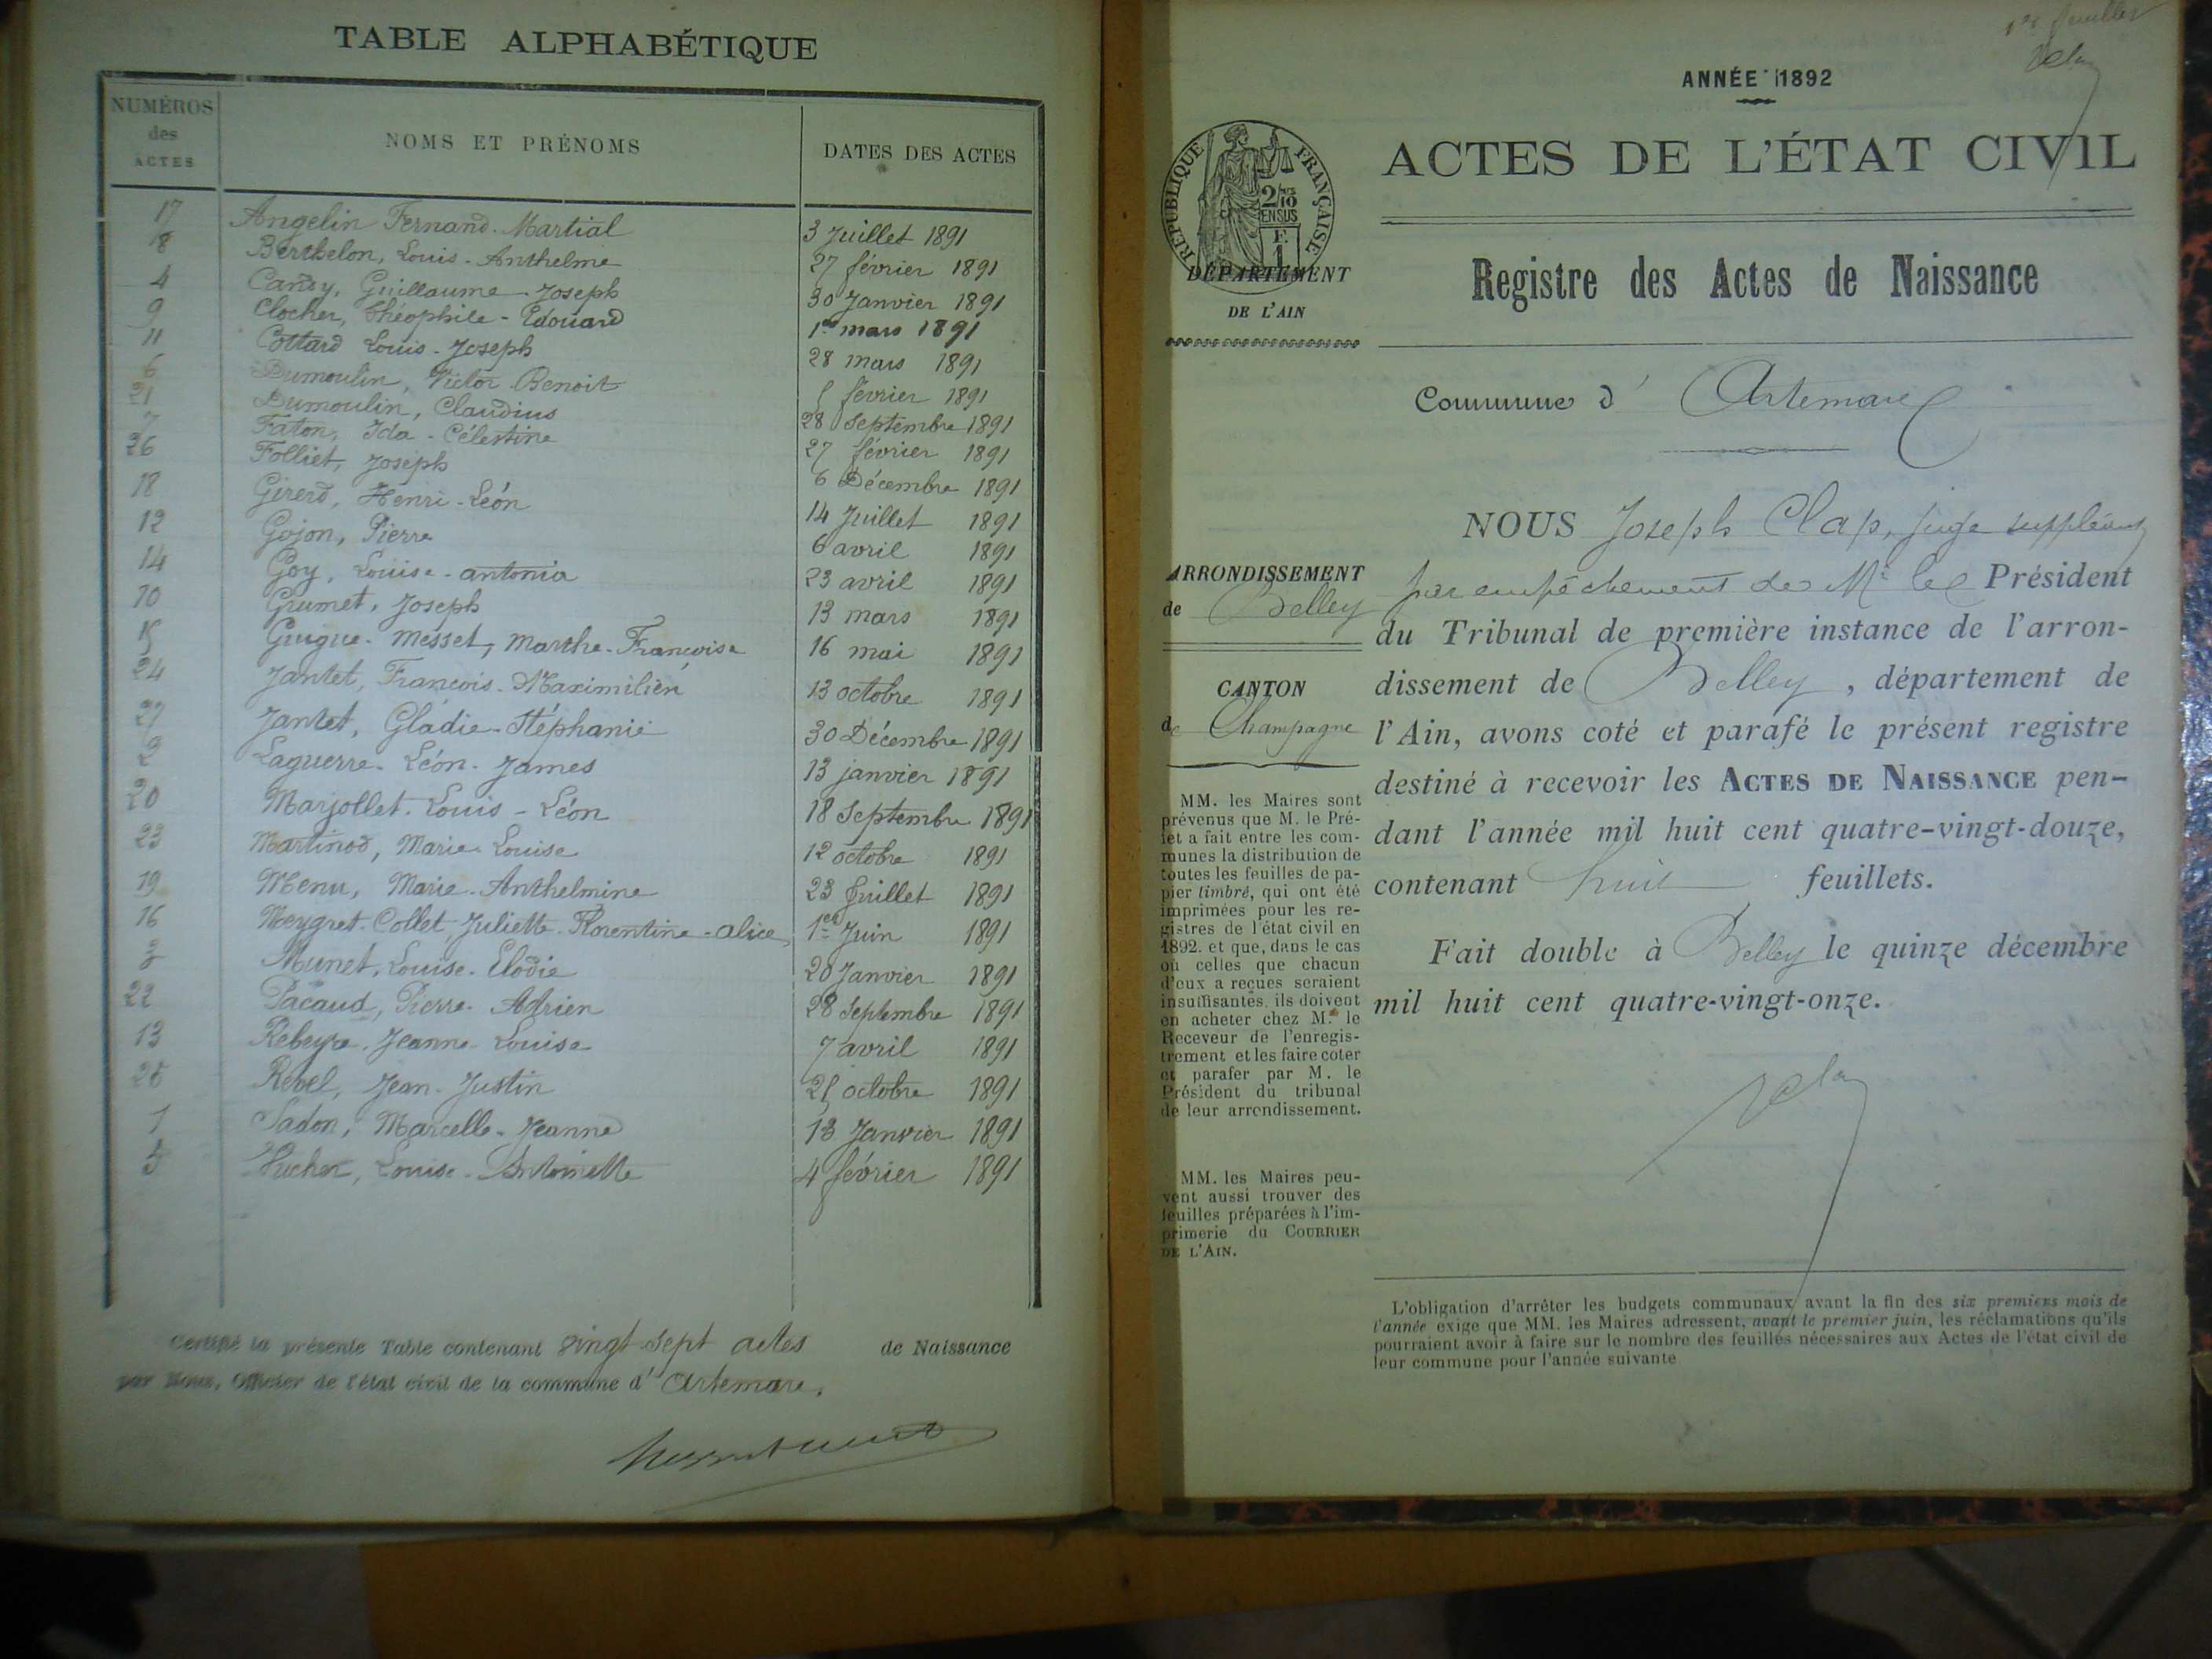 TABLE ALPHABÉTIQUE
NUMÉROS des ACTES
NOMS ET PRÉNOMS
DATES DES ACTES
17 Angelin Fernand-Martial 3 Juillet 1891
8 Berthelon, Louis-Anthelme 27 février 1891
4 Candy, Guillaume-Joseph 30 Janvier 1891
9 Clocher, Théophile-Edouard 1er mars 1891
11 Cottard Louis-Joseph 28 mars 1891
6 Dumoulin, Victor-Benoit 5 février 1891
21 Dumoulin, Claudius 28 Septembre 1891
7 Faton, Ida-Célestine 27 février 1891
26 Folliet, Joseph 6 Décembre 1891
18 Girerd, Henri-Léon 14 Juillet 1891
12 Gojon, Pierre 6 avril 1891
14 Goy, Louise-antonia 23 avril 1891
10 Grumet, Joseph 13 mars 1891
15 Guigue-Messet, Marthe-Françoise 16 mai 1891
24 Jantet, François-Maximilien 13 octobre 1891
27 Jantet, Gladie-Stéphanie 30 Décembre 1891
2 Laguerre-Léon-James 13 janvier 1891
20 Marjollet-Louis-Léon 18 Septembre 1891
23 Martinod, Marie-Louise 12 octobre 1891
19 Menu, Marie-Anthelmine 23 Juillet 1891
16 Meygret-Collet, Juliette-Florentine-alice 1er Juin 1891
3 Munet, Louise-Elodie 20 Janvier 1891
22 Pacaud, Pierre-Adrien 28 Septembre 1891
13 Rebeyre, Jeanne-Louise 7 avril 1891
25 Revel, Jean-Justin 25 octobre 1891
1 Sadon, Marcelle-Jeanne 13 Janvier 1891
5 Vucher, Louise-Antoinette 4 février 1891
Certifié la présente Table contenant vingt-sept actes de Naissance
par Nous, Officier de l'état civil de la commune d'Artemare,
1er feuillet
ANNÉE 1892
ACTES DE L'ÉTAT CIVIL
RÉPUBLIQUE FRANÇAISE
2/10 EN SUS
F. 1
DÉPARTEMENT
DE L'AIN
Registre des Actes de Naissance
Commune d' Artemare
NOUS Joseph Clap, juge suppléant
par empêchement de Mr le Président
du Tribunal de première instance de l'arron-
dissement de Belley, département de
l'Ain, avons coté et parafé le présent registre
destiné à recevoir les ACTES DE NAISSANCE pen-
dant l'année mil huit cent quatre-vingt-douze,
contenant huit feuillets.
Fait double à Belley le quinze décembre
mil huit cent quatre-vingt-onze.
ARRONDISSEMENT
de Belley
CANTON
de Champagne
MM. les Maires sont
prévenus que M. le Pré-
fet a fait entre les com-
munes la distribution de
toutes les feuilles de pa-
pier timbré, qui ont été
imprimées pour les re-
gistres de l'état civil en
1892. et que, dans le cas
où celles que chacun
d'eux a reçues seraient
insuffisantes, ils doivent
en acheter chez M. le
Receveur de l'enregis-
trement et les faire coter
et parafer par M. le
Président du tribunal
de leur arrondissement.
MM. les Maires peu-
vent aussi trouver des
feuilles préparées à l'im-
primerie du COURRIER
DE L'AIN.
L'obligation d'arrêter les budgets communaux avant la fin des six premiers mois de
l'année exige que MM. les Maires adressent, avant le premier juin, les réclamations qu'ils
pourraient avoir à faire sur le nombre des feuilles nécessaires aux Actes de l'état civil de
leur commune pour l'année suivante